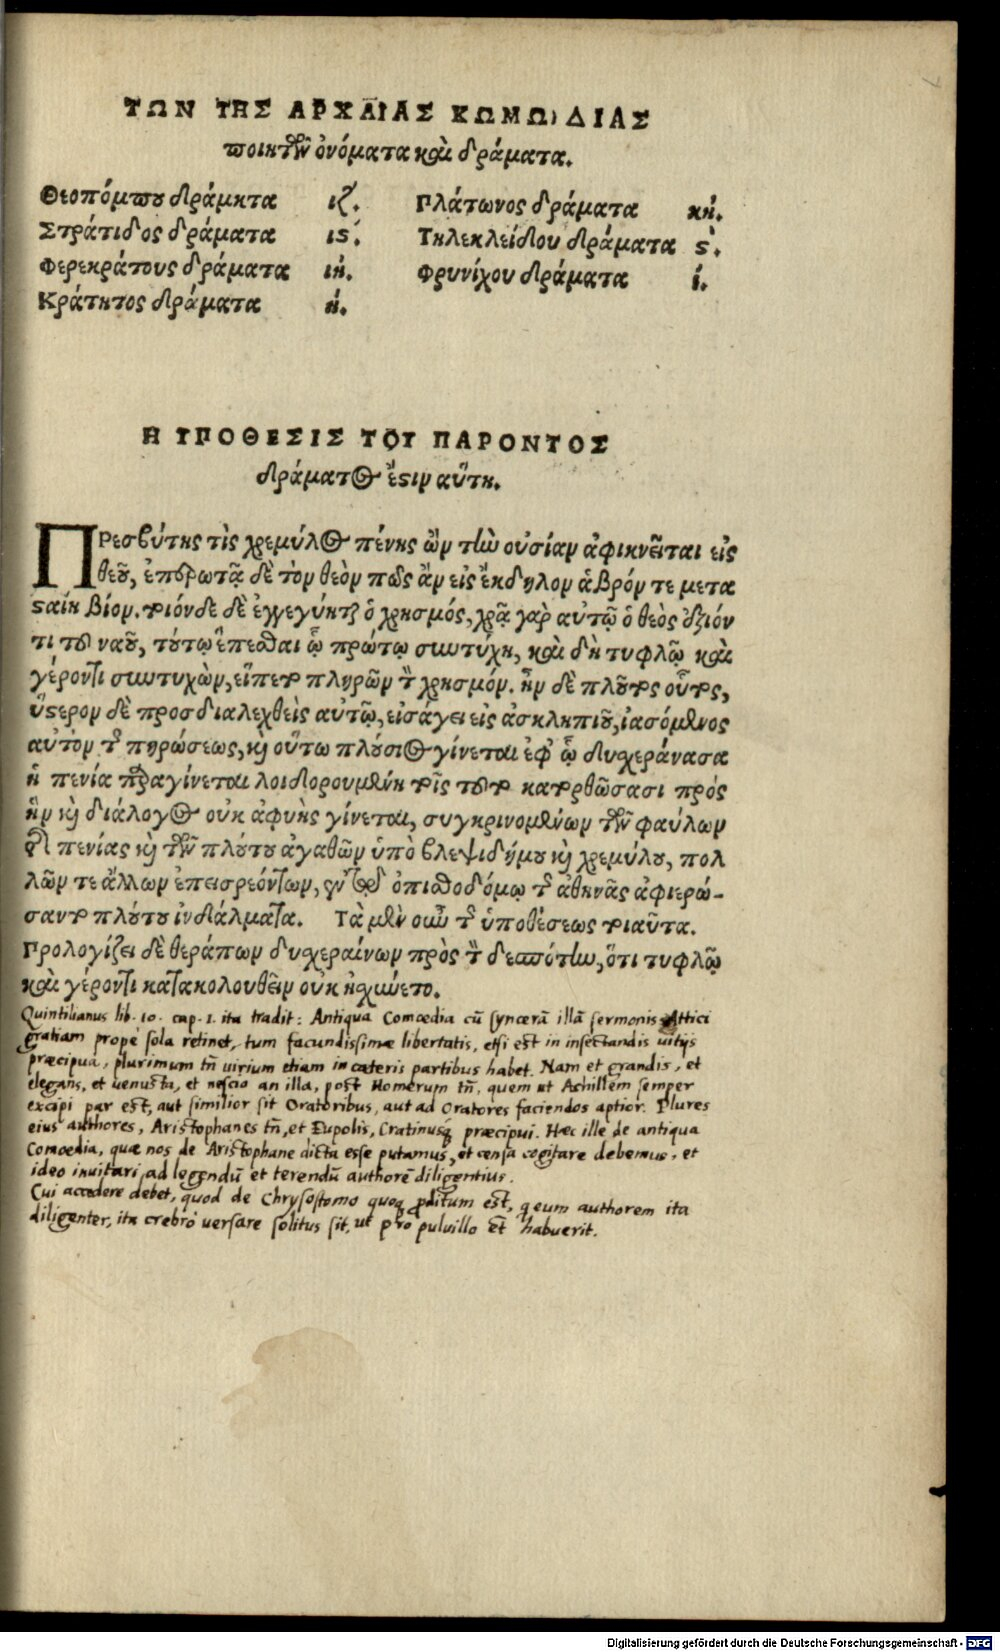 ΤΩΝ ΤΗΣ ΑΡΧΑΙΑΣ ΚΩΜΩΙΔΙΑΣ
ποιητῶν ὀνόματα καὶ δράματα.
Θεοπόμπου δράμητα ιζ΄.
Στράτιδος δράματα ιϛ΄.
Φερεκράτους δράματα ιή.
Κράτητος δράματα ή.
Πλάτωνος δράματα κή.
Τηλεκλείδου δράματα ϛ΄.
Φρυνίχου δράματα ί.
Η ΥΠΟΘΕΣΙΣ ΤΟΥ ΠΑΡΟΝΤΟΣ
δράματος ἔστιν αὕτη.
ΠΡεσβύτης τὶς χρεμύλος πένης ὢν τὴν οὐσίαν ἀφικνεῖται εἰς
θεοῦ, ἐπερωτᾷ δὲ τὸν θεὸν πῶς ἂν εἰς ἔκδηλον ἁβρόν τε μετα
σταίη βίον. τοιόνδε δὲ ἐγγεγύητο ὁ χρησμός, χρᾷ γὰρ αὐτῷ ὁ θεὸς ἐξιόν
τι τοῦ ναοῦ, τούτῳ ἕπεσθαι ᾧ πρώτῳ συντύχῃ, καὶ δὴ τυφλῷ καὶ
γέροντι συντυχὼν, εἵπετο πληρῶν τὸν χρησμόν. ἦν δὲ πλοῦτος οὗτος,
ὕστερον δὲ προσδιαλεχθεὶς αὐτῷ, εἰσάγει εἰς ἀσκληπιοῦ, ἰασόμενος
αὐτὸν τῆς πηρώσεως, καὶ οὕτω πλούσιος γίνεται ἐφ᾽ ᾧ δυσχεράνασα
ἡ πενία παραγίνεται λοιδορουμένη τοῖς τοῦτο κατορθῶσασι πρός
ἣν καὶ διάλογος οὐκ ἀφυὴς γίνεται, συγκρινομένων τῶν φαύλων
τῆς πενίας καὶ τῶν πλούτου ἀγαθῶν ὑπὸ βλεψιδήμου καὶ χρεμύλου, πολ
λῶν τε ἄλλων ἐπεισρεόντων, ἐν τῷ ὀπισθοδόμῳ τῆς ἀθηνᾶς ἀφιερώ-
σαντο πλούτου ἰνδάλματα. Τὰ μὲν οὖν τῆς ὑποθέσεως τοιαῦτα.
Προλογίζει δὲ θεράπων δυσχεραίνων πρὸς τὸν δεσπότην, ὅτι τυφλῷ
καὶ γέροντι κατακολουθεῖν οὐκ ᾐσχύνετο.
Quintilianus lib. 10. cap. 1. ita tradit: Antiqua Comœdia cū syncerā illā sermonis Attici
gratiam propè sola retinet, tum facundissimæ libertatis, etsi est in insectandis uitijs
præcipua, plurimum tñ uirium etiam in cæteris partibus habet. Nam et grandis, et
elegans, et uenusta, et nescio an illa, post Homerum tñ, quem ut Achillem semper
excipi par est, aut similior sit Oratoribus, aut ad Oratores faciendos aptior. Plures
eius authores, Aristophanes tñ, et Eupolis, Cratinusq præcipui. Hæc ille de antiqua
Comœdia, quæ nos de Aristophane dicta esse putamus, et censa cogitare debemus, et
ideo inuitari ad legendū et terendū authorē diligentius.
Cui accedere debet, quod de Chrysostomo quoq proditum est, q eum authorem ita
diligenter, ita crebrò uersare solitus sit, ut pro puluillo et habuerit.
Digitalisierung gefördert durch die Deutsche Forschungsgemeinschaft - DFG